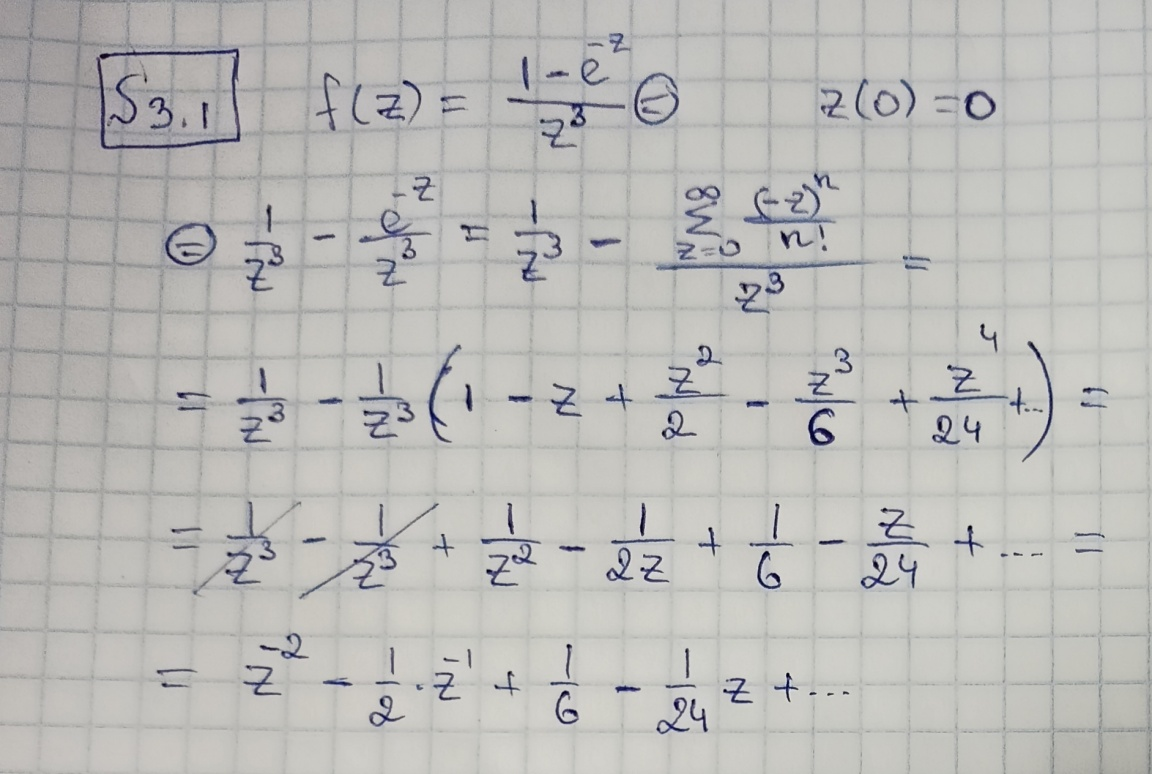 S 3.1 f(z) = \frac{1 - e^{-z}}{z^3} ⊜ z(0) = 0
⊜ \frac{1}{z^3} - \frac{e^{-z}}{z^3} = \frac{1}{z^3} - \frac{\sum_{z=0}^{\infty} \frac{(-z)^n}{n!}}{z^3} =
= \frac{1}{z^3} - \frac{1}{z^3} (1 - z + \frac{z^2}{2} - \frac{z^3}{6} + \frac{z^4}{24} + ...) =
= \frac{1}{z^3} - \frac{1}{z^3} + \frac{1}{z^2} - \frac{1}{2z} + \frac{1}{6} - \frac{z}{24} + .... =
= z^{-2} - \frac{1}{2} \cdot z^{-1} + \frac{1}{6} - \frac{1}{24} z + ...